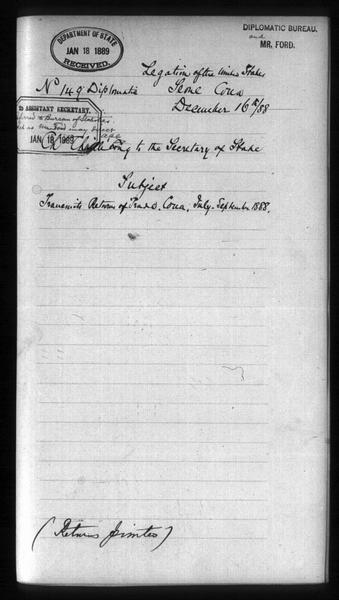 DIPLOMATIC BUREAU.
and
MR. FORD.
DEPARTMENT OF STATE
JAN 18 1889
RECEIVED.
Legation of the United States
No 149 Diplomatic Seoul Corea
December 16th/88
ASSISTANT SECRETARY.
JAN 18
to the Secretary of State
Subject
Transmits Returns of Trade, Corea, July-September 1888.
(Returns printed)